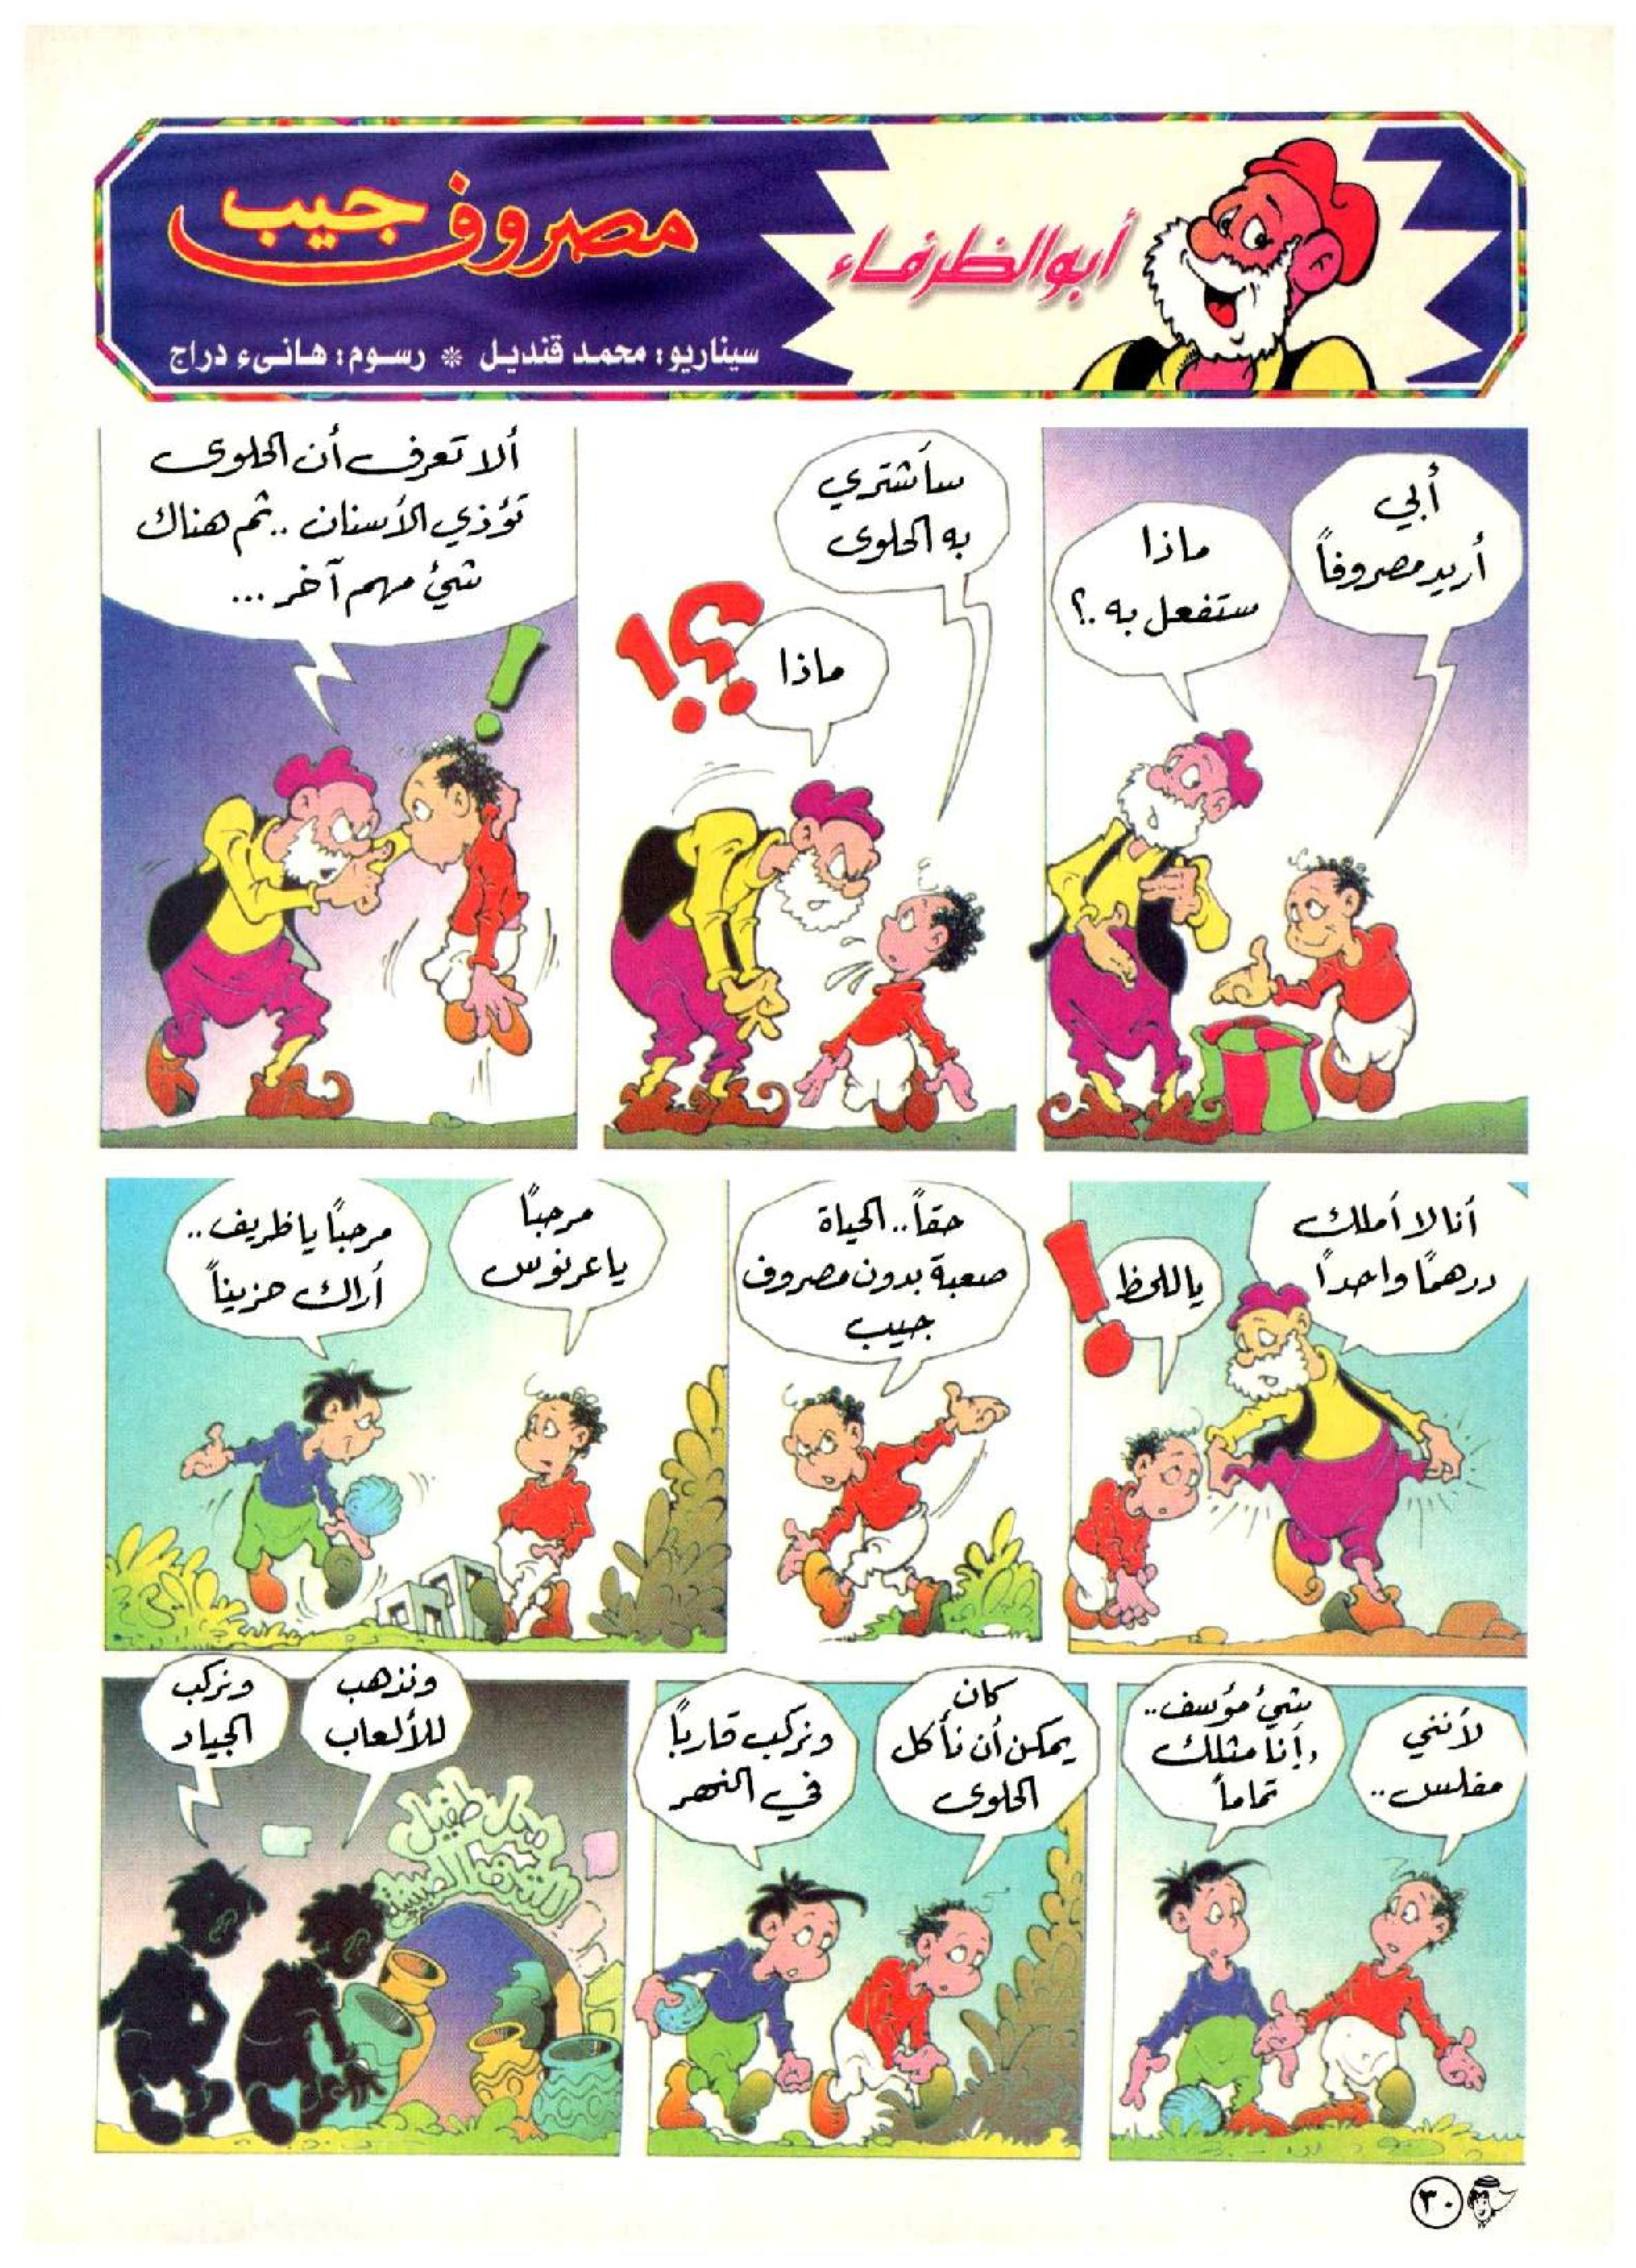 أبو الظرفاء
مصروف جيب
سيناريو: محمد قنديل * رسوم: هانىء دراج
أبي
أريد مصروفاً
ماذا
ستفعل به.؟
سأشتري
به الحلوى
ماذا
؟!
ألا تعرف أن الحلوى
تؤذي الأسنان.. ثم هناك
شيئ مهم آخر...
!
أنا لا أملك
درهمًا واحدًا
ياللحظ
!
حقاً.. الحياة
صعبة بدون مصروف
جيب
مرحبًا
يا عرنوس
مرحبًا يا ظريف..
أراك حزيناً
لأنني
مفلس..
شيئ مؤسف..
وأنا مثلك
تماماً
كان
يمكن أن نأكل
الحلوى
ونركب قاربًا
في النهر
ونذهب
للألعاب
ونركب
الجياد
٣٠